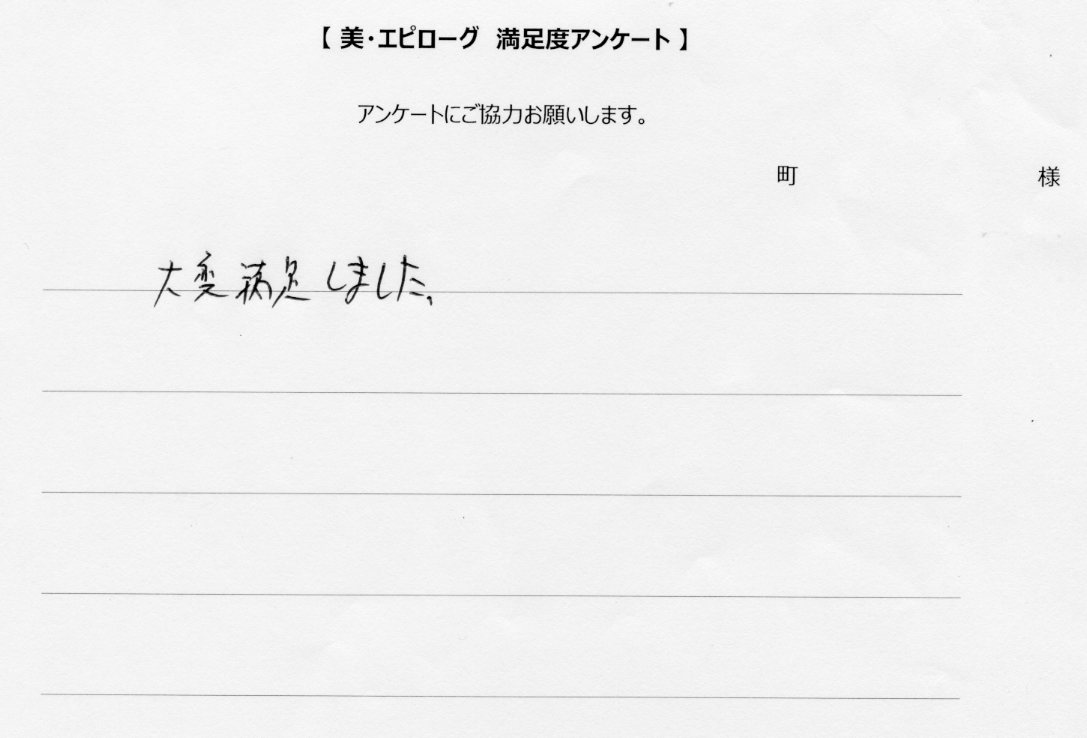 【 美・エピローグ 満足度アンケート 】
アンケートにご協力お願いします。
町 様
大変満足しました。